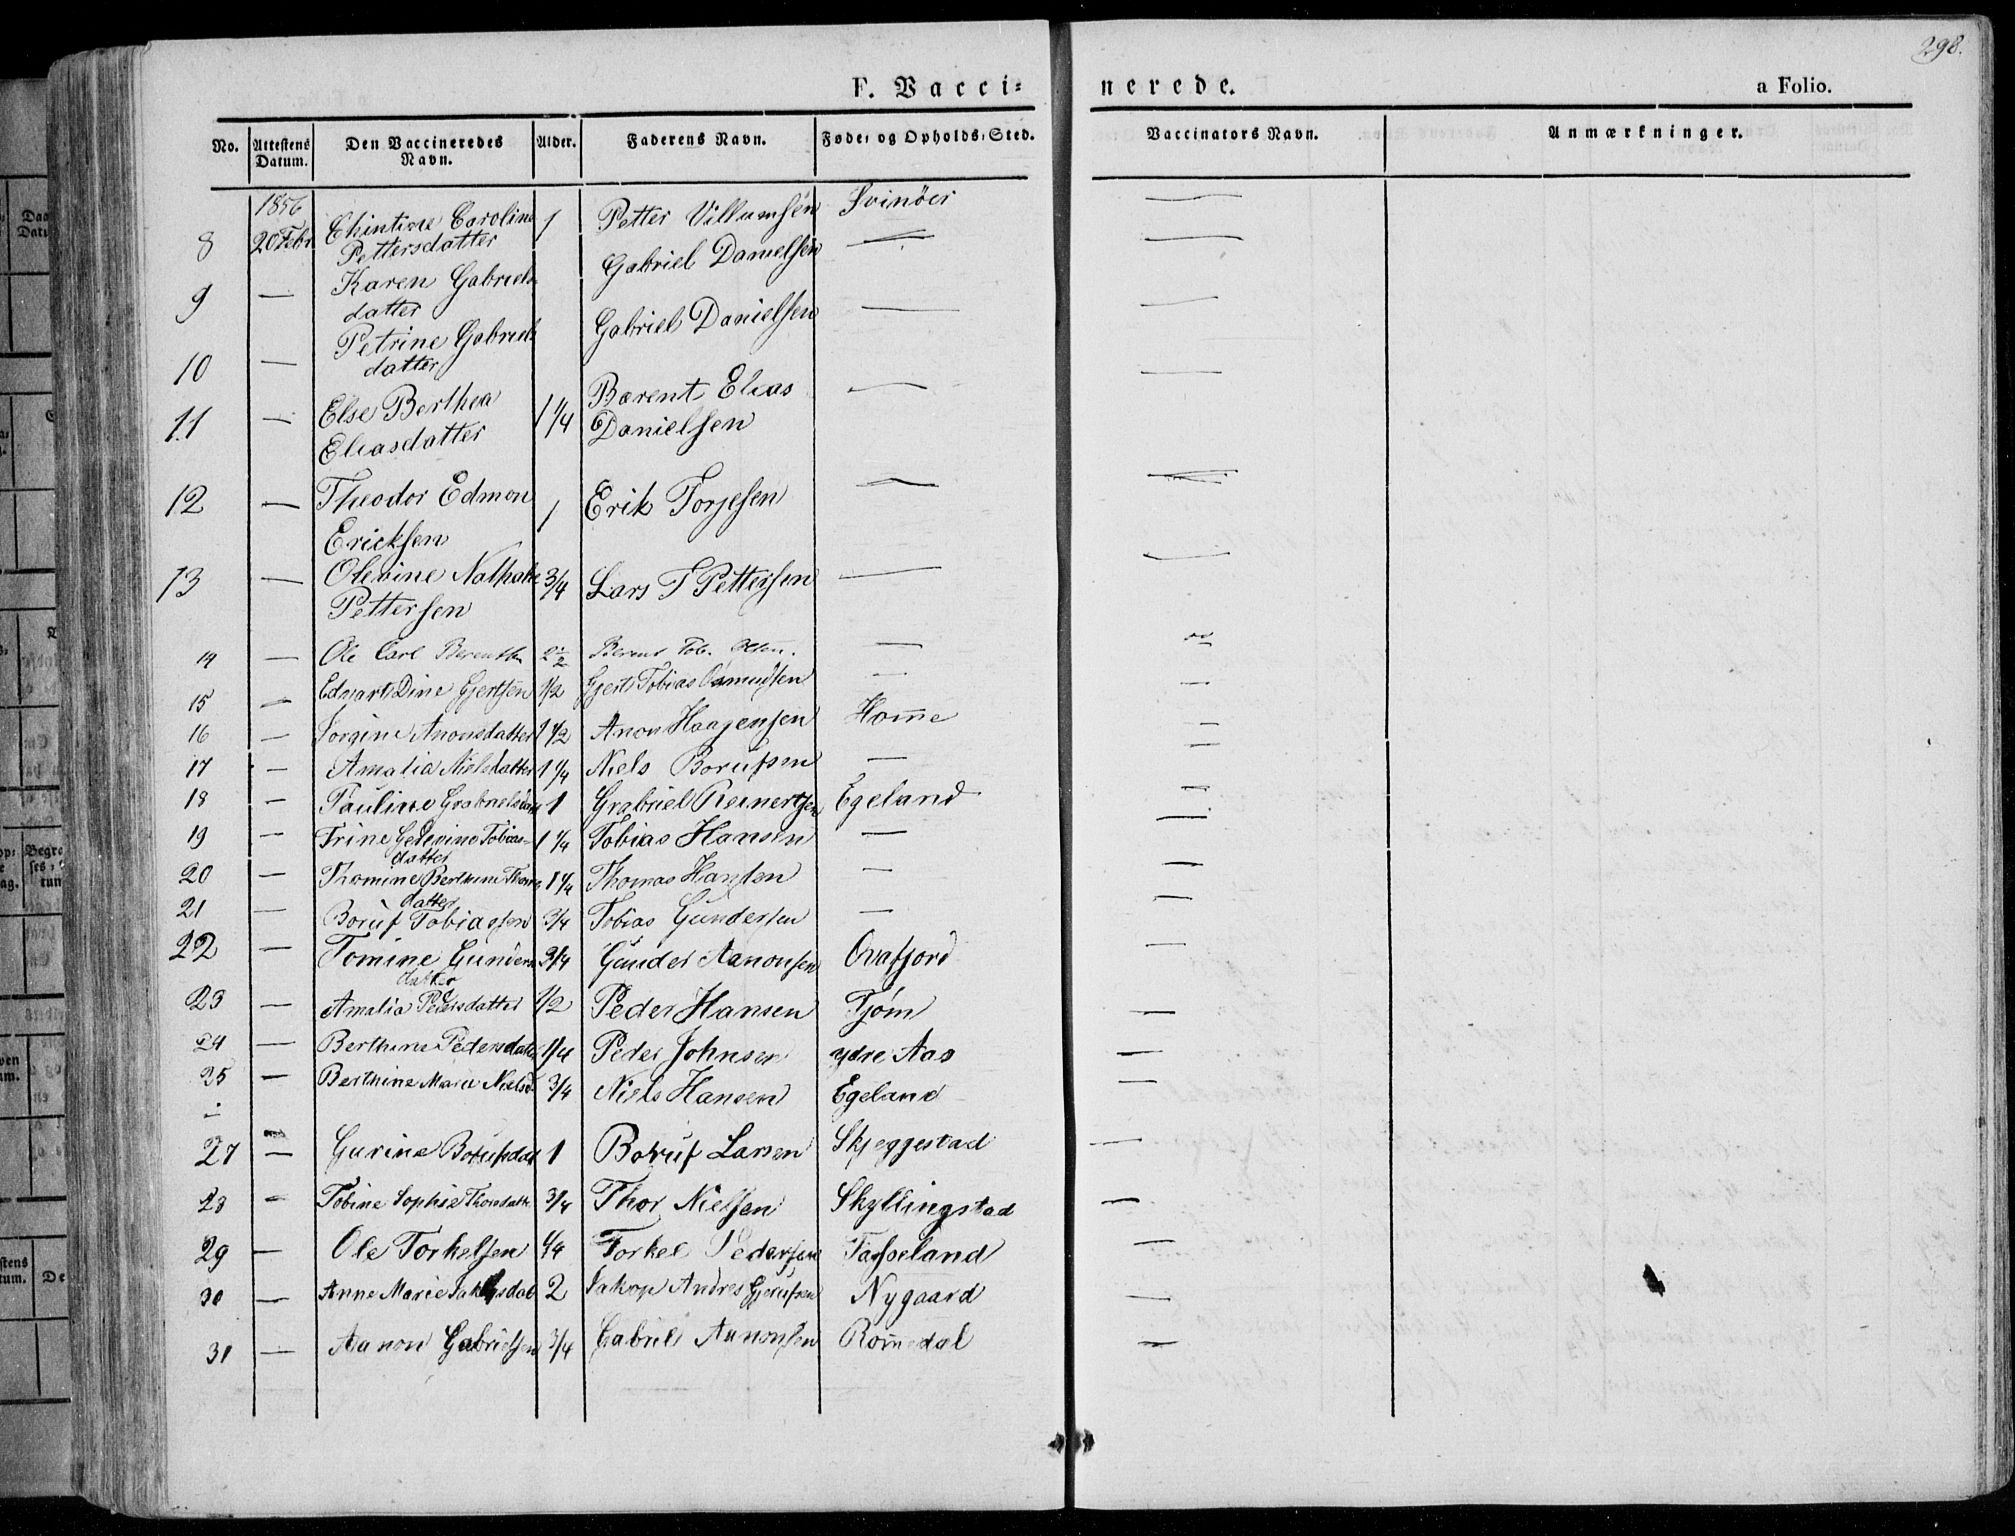 298.
F. Vacci= nerede. a Folio.
No. Attestens Datum. Den Vaccineredes Navn. Alder. Faderens Navn. Føde- og Opholds-Sted. Vaccinators Navn. Anmærkninger.
1856
8 20 Febr Caroline Pettersdatter 1 Petter Villumsen Svinöer —
9 — Karen Gabriels datter Gabriel Danielsen — —
10 — Petrine Gabriels datter Gabriel Danielsen — —
11 — Else Berthea Eliasdatter 1 1/4 Barent Elias Danielsen — —
12 — Theodor Edmon Ericksen 1 Erik Torjesen — —
13 — Olevine Nathalie Pettersen 3/4 Lars T Pettersen — —
14 — Ole Carl Berentsen 2 1/2 Berent Tob. Olsen. —
15 — Edvart Dine Gjertsen 1/2 Gjert Tobias Osmundsen — —
16 — Sorine Anonsdatter 1 1/2 Anon Haagensen Home —
17 — Amalia Nielsdatter 1 1/4 Niels Borufsen — —
18 — Pauline Grabrielsdatt 1 Grabriel Reinertsen Egeland —
19 — Trine Tobias- datter 1 1/4 Tobias Hansen — —
20 — Thomine Berthine Thoms datter 1 1/4 Thomas Hansen — —
21 — Boruf Tobiassen 3/4 Tobias Gundersen — —
22 — Tomine Gunders datter 3/4 Gunder Aanonsen Ovafjord —
23 — Amalia Pedersdatter 1/2 Peder Hansen Tjóm —
24 — Berthine Pedersdatter 1/4 Peder Johnsen ydre Aas —
25 — Berthine Marie Nielsd 3/4 Niels Hansen Egeland —
27 — Gurine Borufsdatt 1 Boruf Larsen Skjeggestad —
28 — Tobine Sophie Thorsdatte 3/4 Thor Nielsen Skyllingstad —
29 — Ole Torkelsen 1/4 Torkel Pedersen Tarpeland —
30 — Anne Marie Jakobsdat 2 Jakop Andres Gjerufsen Nygaard —
31 — Aanon Gabrielsen 3/4 Gabriel Aanonsen Romedal —